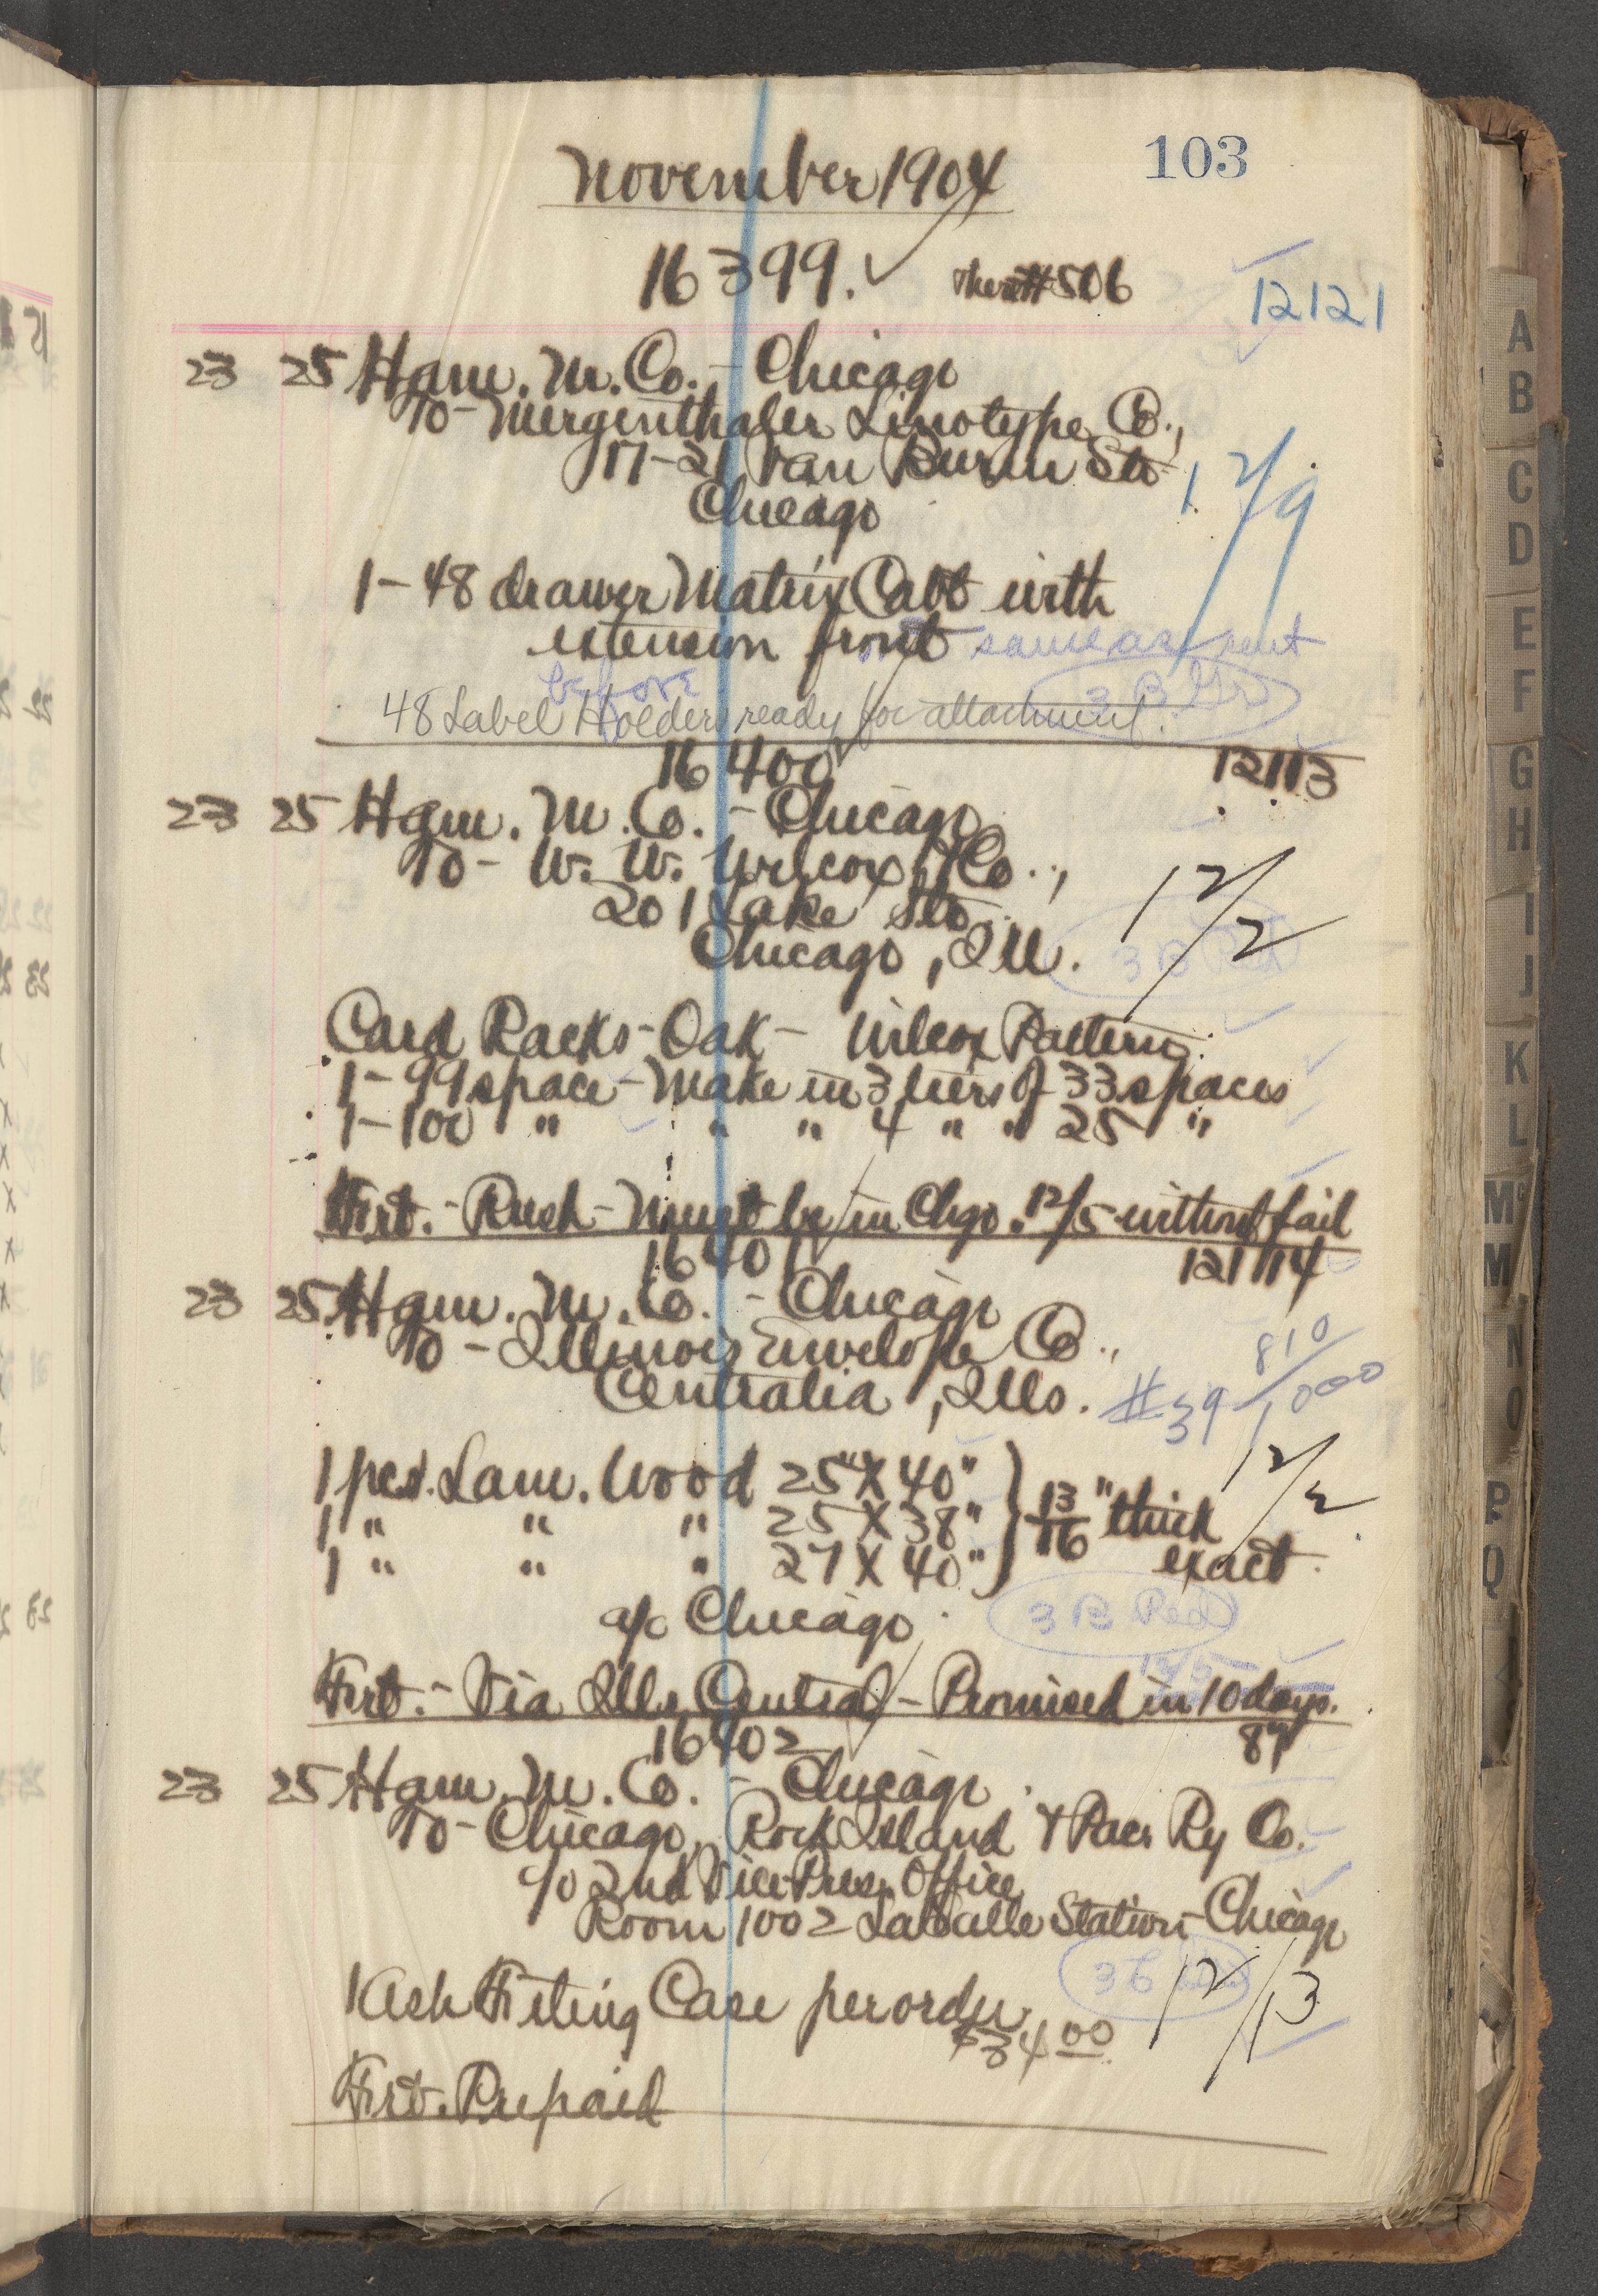 November 1904
103
16399.
#506
12121
23 25 Ham. M. Co. - Chicago
To - Mergenthaler Linotype Co.,
17-21 Van Buren St.
Chicago
12/9
1 - 48 drawer Matrix Cabt with
extension front same as sent
before
3 B Gr
48 Label Holders ready for attachment.
16400
12113
23 25 Ham. M. Co. - Chicago
To - W. W. Wilcox Co.,
201 Lake St.
Chicago, Ill.
12/2
3 B Red
Card Racks - Oak - Wilcox Pattern
1 - 99 space - Make in 3 tiers of 33 spaces
1 - 100 " " " 4 " " 25 "
Frt. - Rush - Must be in Chgo. 12/5 without fail
16401
12114
23 25 Ham. M. Co. - Chicago
To - Illinois Envelope Co.,
Centralia, Ills.
#39 810/1000
12/2
1 pcs. Lam. Wood 25" X 40"
1 " " " 25 X 38" } 13/16" thick
1 " " " 27 X 40" exact.
a/c Chicago
3 B Red
12/5
Frt. - Via Ills Central - Promised in 10 days.
16402
87
23 25 Ham. M. Co. - Chicago
To - Chicago, Rock Island & Pac. Ry Co.
c/o 2nd Vice Pres. Office
Room 1002 LaSalle Station - Chicago
12/13
1 Ash Filing Case per order
$34.00
Frt. Prepaid
A
B
C
D
E
F
G
H
I
J
K
L
Mc
M
N
O
P
Q